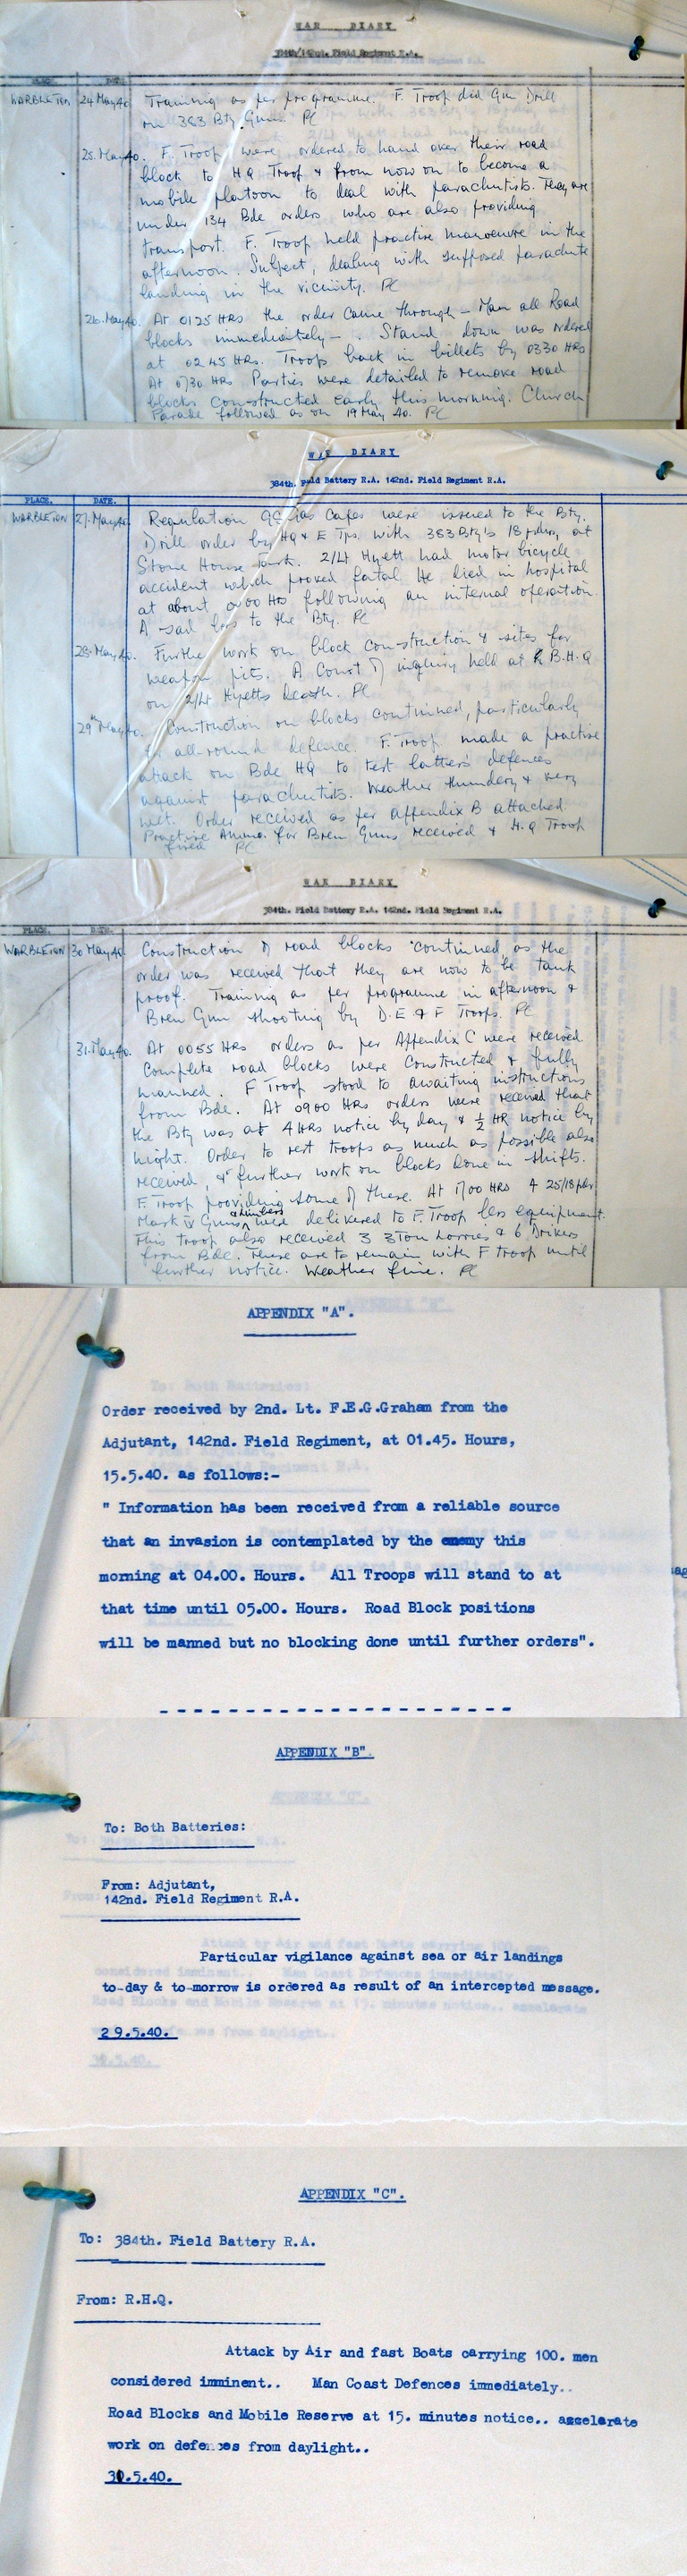 WAR DIARY
384th/142nd. Field Regiment R.A.
PLACE. DATE.
WARBLETON 24 May 40. Training as per programme. F. Troop did Gun Drill
on 383 Bty. Guns. PC
25. May 40. F. Troop were ordered to hand over their road
block to HQ Troop & from now on to become a
mobile platoon to deal with parachutists. They are
under 134 Bde orders who are also providing
transport. F. Troop held practise manoeuvre in the
afternoon. Subject, dealing with supposed parachute
landing in the vicinity. PC
26. May 40. At 0125 HRS the order came through – Man all Road
blocks immediately – . Stand down was ordered
at 0245 HRS. Troops back in billets by 0330 HRS
At 0730 HRS Parties were detailed to remove road
blocks constructed early this morning. Church
Parade followed as on 19 May 40. PC
WAR DIARY
384th. Field Battery R.A. 142nd. Field Regiment R.A.
PLACE. DATE.
WARBLETON 27. May 40. Regulation Gas Capes were issued to the Bty.
Drill order by HQ & E Tps. with 383 Bty's 18 pdrs, at
Stone House Park. 2/Lt Hyett had motor bicycle
accident which proved fatal. He died in hospital
at about HRS following an internal operation.
A sad loss to the Bty. PC
28. May 40. Further work on block construction & sites for
weapon pits. A Court of inquiry held at R.B.H.Q
on 2/Lt Hyetts death. PC
29th May 40. Construction on blocks continued, particularly
for all-round defence. F. Troop made a practise
attack on Bde HQ to test latter's defences
against parachutists. Weather thundery & very
wet. Order received as per appendix B attached.
Practise Ammo. for Bren Guns received & H.Q Troop
fired PC
WAR DIARY
384th. Field Battery R.A. 142nd. Field Regiment R.A.
PLACE. DATE.
WARBLETON 30 May 40. Construction of road blocks continued as the
order was received that they are now to be tank
proof. Training as per programme in afternoon &
Bren Gun shooting by D. E & F Troops. PC
31. May 40. At 0055 HRS orders as per Appendix C were received
Complete road blocks were constructed & fully
manned. F Troop stood to awaiting instructions
from Bde. At 0900 HRS orders were received that
the Bty was at 4 HRS notice by day & ½ HR notice by
night. Order to rest troops as much as possible also
received, & further work on blocks done in shifts.
F. Troop providing some of these. At 1700 HRS 4 25/18 pdr
Mark IV Guns & limbers were delivered to F. Troop less equipment.
This troop also received 3 3 Ton Lorries & 6 Drivers
from Bde. These are to remain with F troop until
further notice. Weather fine. PC
APPENDIX "A".
Order received by 2nd. Lt. F.E.G.Graham from the
Adjutant, 142nd. Field Regiment, at 01.45. Hours,
15.5.40. as follows:-
" Information has been received from a reliable source
that an invasion is contemplated by the enemy this
morning at 04.00. Hours. All Troops will stand to at
that time until 05.00. Hours. Road Block positions
will be manned but no blocking done until further orders".
APPENDIX "B".
To: Both Batteries:
From: Adjutant,
142nd. Field Regiment R.A.
Particular vigilance against sea or air landings
to-day & to-morrow is ordered as result of an intercepted message.
29.5.40.
APPENDIX "C".
To: 384th. Field Battery R.A.
From: R.H.Q.
Attack by Air and fast Boats carrying 100. men
considered imminent.. Man Coast Defences immediately..
Road Blocks and Mobile Reserve at 15. minutes notice.. accelerate
work on defences from daylight..
31.5.40.